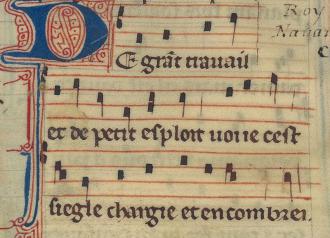 Roy
Navar
DE grãt trauail
et de petit esploit uoi ie cest
siegle chargie et encombrei.